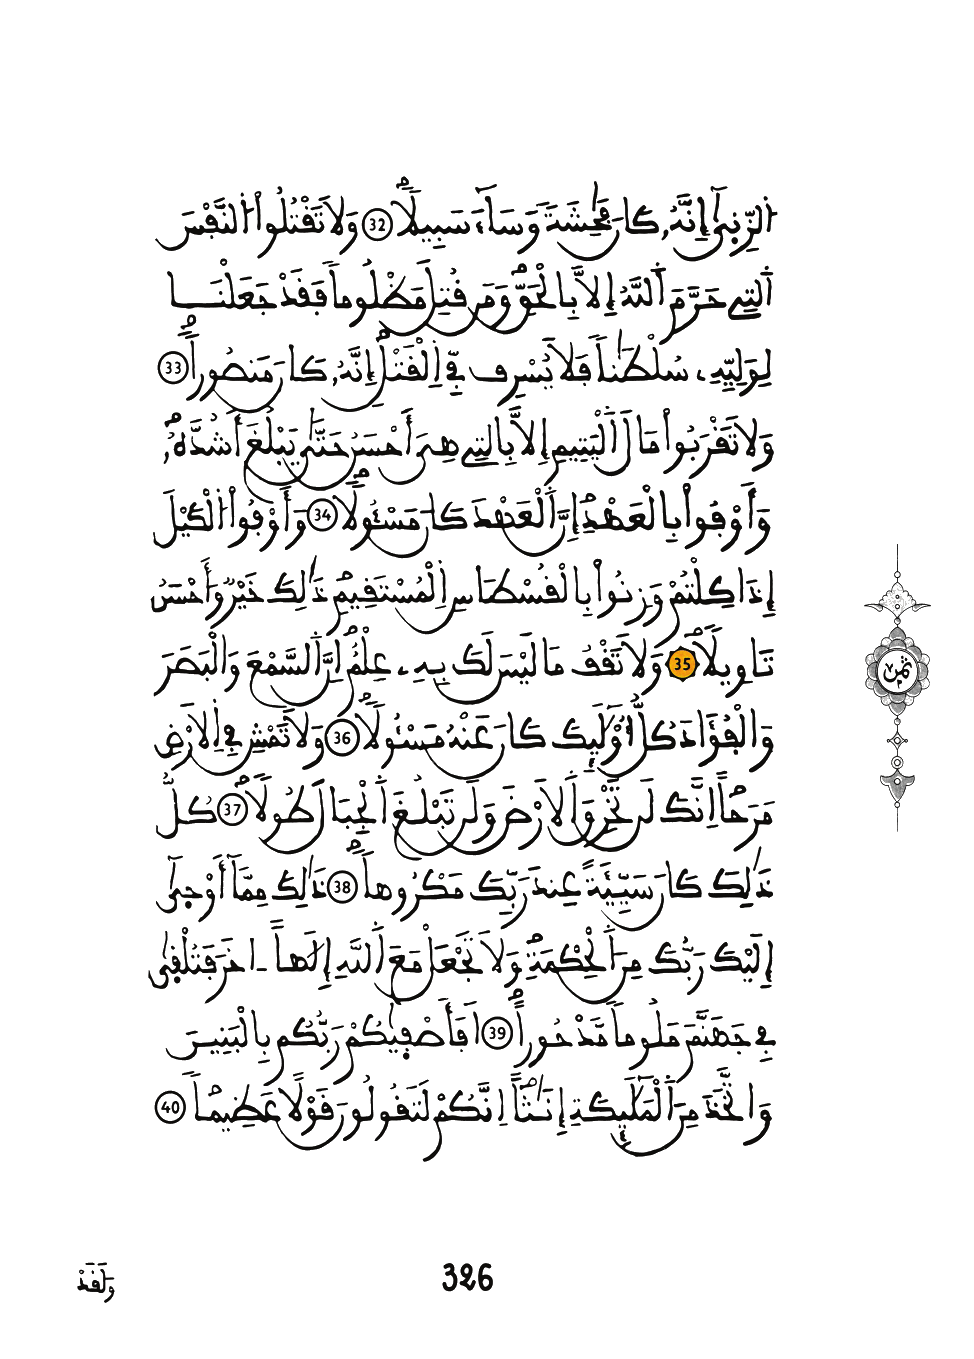 اَ۬لزِّنٜيٰٓ إِنَّهُۥ كَانَ فَٰحِشَةٗ وَسَآءَ سَبِيلاٗۖ 32 وَلَا تَقْتُلُواْ اُ۬لنَّفْسَ
اَ۬لتِے حَرَّمَ اَ۬للَّهُ إِلَّا بِالْحَقِّۖ وَمَن قُتِلَ مَظْلُوماٗ فَقَدْ جَعَلْنَا
لِوَلِيِّهِۦ سُلْطَٰناٗ فَلَا يُسْرِف فِّے اِ۬لْقَتْلِۖ إِنَّهُۥ كَانَ مَنصُوراٗۖ 33
وَلَا تَقْرَبُواْ مَالَ اَ۬لْيَتِيمِ إِلَّا بِالتِے هِيَ أَحْسَنُ حَتَّيٰ يَبْلُغَ أَشُدَّهُۥۖ
وَأَوْفُواْ بِالْعَهْدِۖ إِنَّ اَ۬لْعَهْدَ كَانَ مَسْـُٔولاٗۖ 34 وَأَوْفُواْ اُ۬لْكَيْلَ
إِذَا كِلْتُمْ وَزِنُواْ بِالْقُسْطَاسِ اِ۬لْمُسْتَقِيمِۖ ذَٰلِكَ خَيْرٞ وَأَحْسَنُ
تَاوِيلاٗۖ 35 وَلَا تَقْفُ مَا لَيْسَ لَكَ بِهِۦ عِلْمٌۖ اِنَّ اَ۬لسَّمْعَ وَالْبَصَرَ
وَالْفُؤَادَ كُلُّ أُوْلَٰٓئِكَ كَانَ عَنْهُ مَسْـُٔولاٗۖ 36 وَلَا تَمْشِ فِے اِ۬لَارْضِ
مَرَحاًۖ اِنَّكَ لَن تَخْرِقَ اَ۬لَارْضَ وَلَن تَبْلُغَ اَ۬لْجِبَالَ طُولاٗۖ 37 كُلُّ
ذَٰلِكَ كَانَ سَيِّئَةً عِندَ رَبِّكَ مَكْرُوهاٗۖ 38 ذَٰلِكَ مِمَّآ أَوْحٜيٰٓ
إِلَيْكَ رَبُّكَ مِنَ اَ۬لْحِكْمَةِۖ وَلَا تَجْعَلْ مَعَ اَ۬للَّهِ إِلَٰهاً اٰخَرَ فَتُلْقٜيٰ
فِے جَهَنَّمَ مَلُوماٗ مَّدْحُوراًۖ 39 اَفَأَصْفٜيٰكُمْ رَبُّكُم بِالْبَنِينَ
وَاتَّخَذَ مِنَ اَ۬لْمَلَٰٓئِكَةِ إِنَٰثاًۖ اِنَّكُمْ لَتَقُولُونَ قَوْلاً عَظِيماٗۖ 40
ثمن
326
وَلَقَدْ